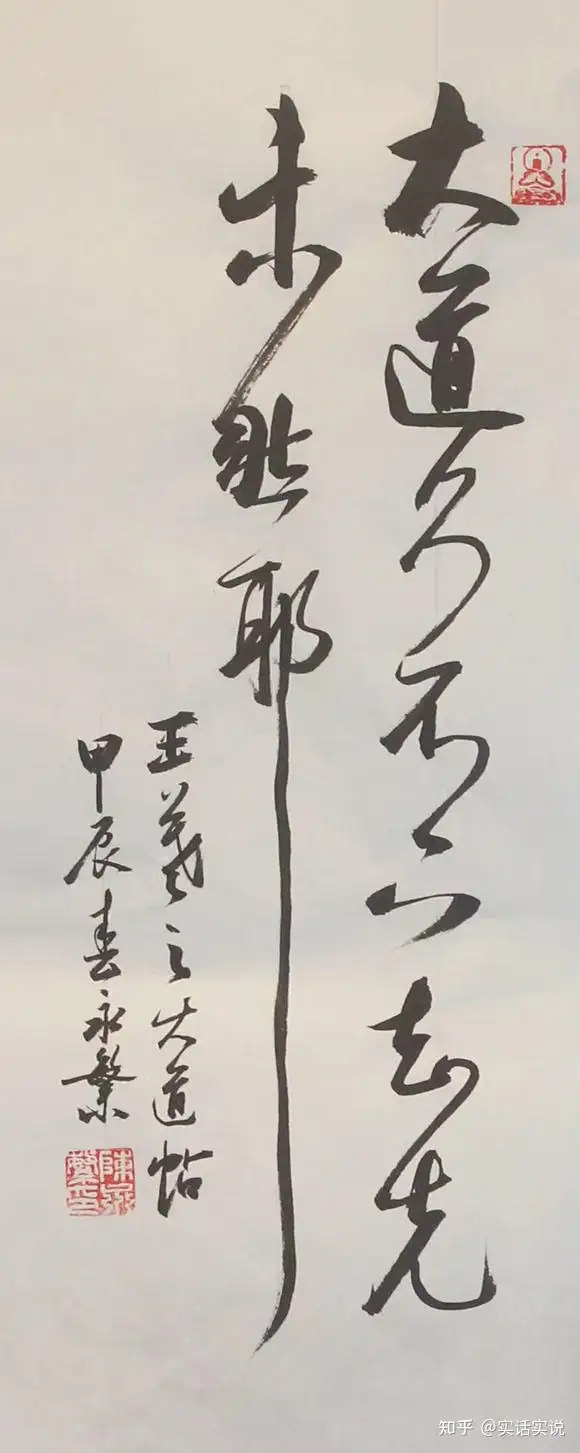 大道久不下与先
未然耶
王羲之大道帖
甲辰春永繁
陳永繁印
知乎 @实话实说